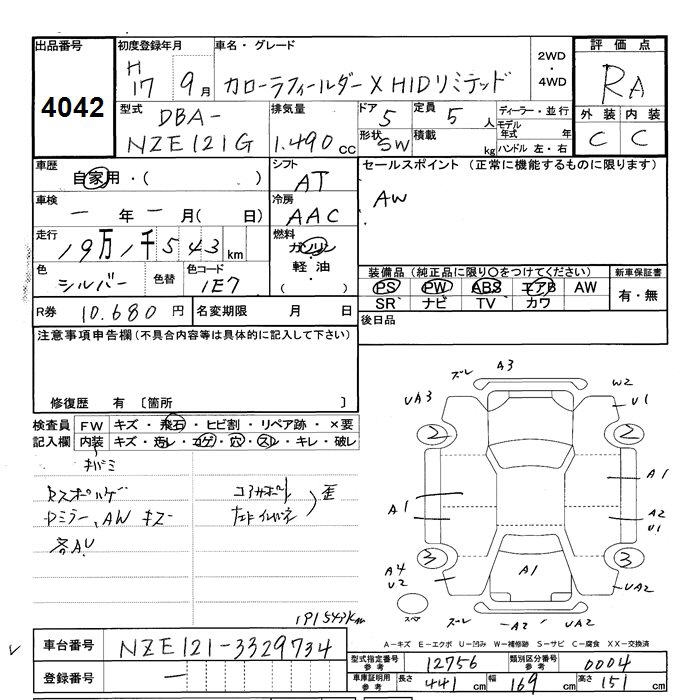 出品番号 初度登録年月 車名・グレード 2WD・4WD 評価点
4042 H17 9月 カローラフィールダー X HIDリミテッド RA
型式 排気量 ドア 定員 ディーラー・並行 外装 内装
DBA-NZE121G 1.490cc 5 5人 モデル年式 年 C C
形状 SW 積載 kg ハンドル 左・右
車歴 自家用・( ) シフト AT セールスポイント (正常に機能するものに限ります)
車検 一年一月( 日) 冷房 AAC AW
走行 19万1千543km 燃料 ガソリン
色 シルバー 色替 色コード 1E7 軽油 ( )
装備品 (純正品に限り○をつけてください) 新車保証書
PS PW ABS エアB AW 有・無
SR ナビ TV カワ
R券 10.680円 名変期限 月 日 後日品
注意事項申告欄(不具合内容等は具体的に記入して下さい)
修復歴 有 〔箇所 〕
検査員 FW キズ・飛石・ヒビ割・リペア跡・×要
記入欄 内装 キズ・汚レ・コゲ・穴・スレ・キレ・破レ
キバミ
コアサポート
Dミラー、AW キズ
歪
各AU
191543km
ズレ A3
UA3 W2 U1
2 2
A1 A1
A2 U1
3 3
A4 U2 A1 UA2
スペア ズレ A2 UA2
A-キズ E-エクボ U-凹み W-補修跡 S-サビ C-腐食 XX-交換済
車台番号 NZE121-3329734
型式指定番号 参考 12756 類別区分番号 参考 0004
登録番号 一
車庫証明用 参考 長さ 441cm 幅 169cm 高さ 151cm